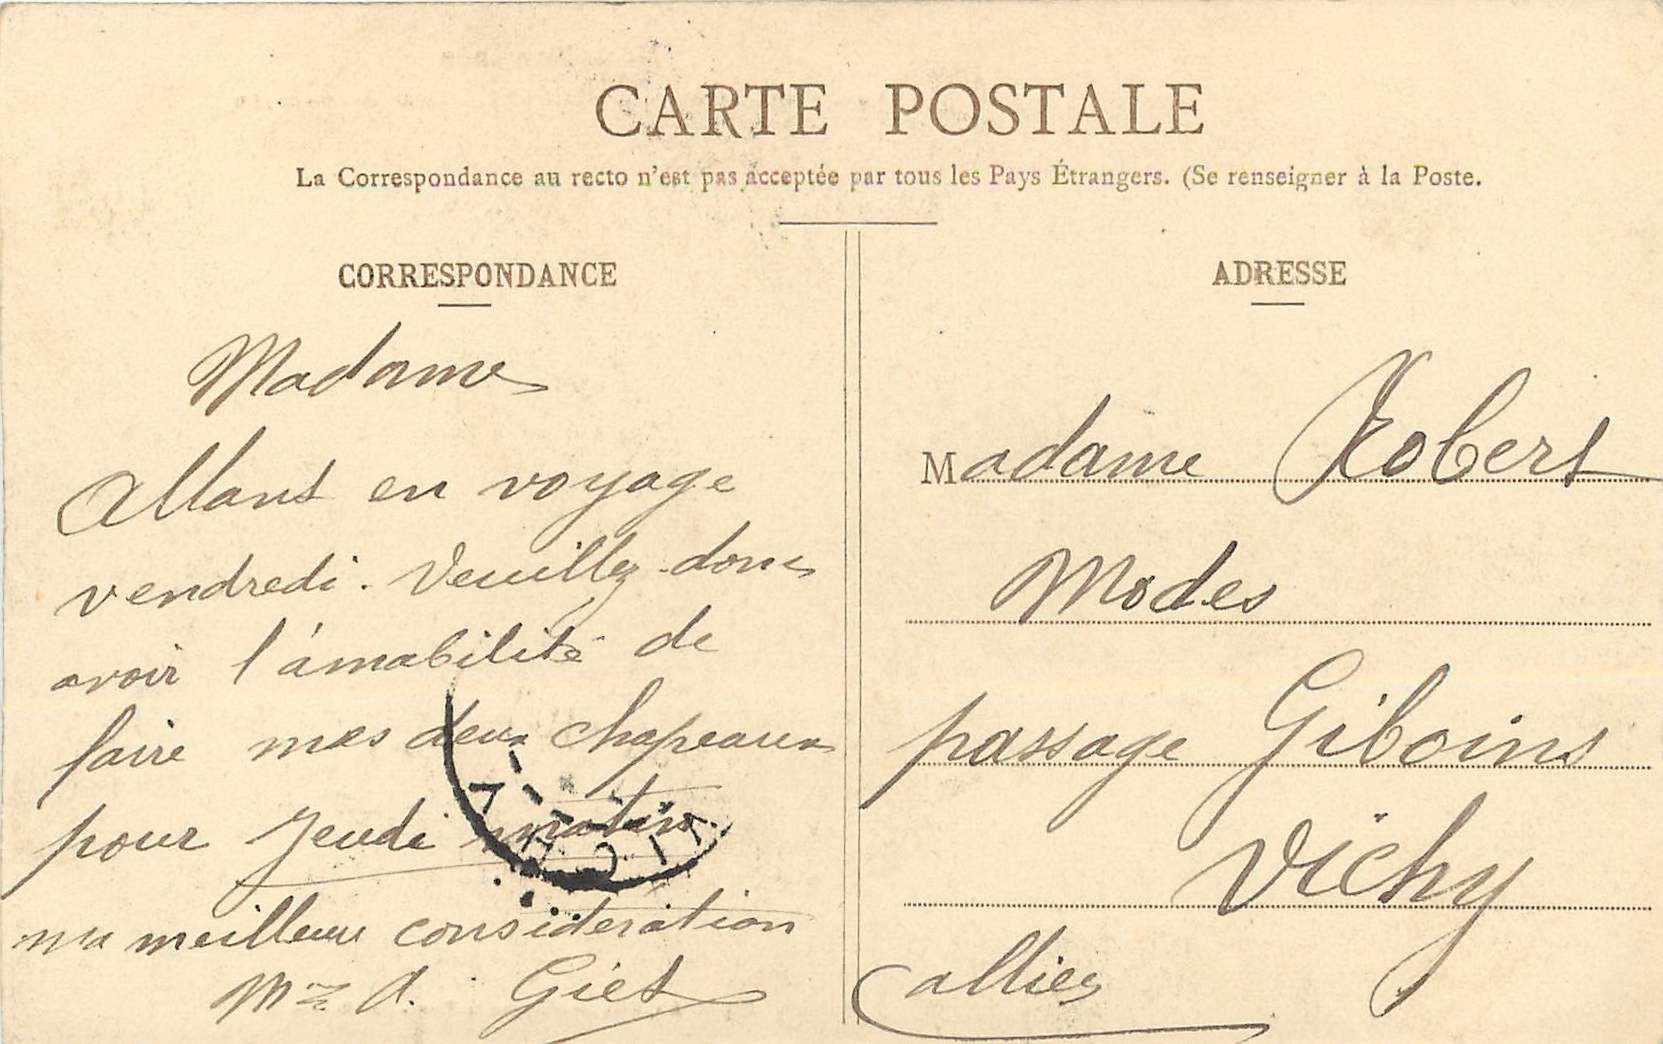 CARTE POSTALE
La Correspondance au recto n'est pas acceptée par tous les Pays Étrangers. (Se renseigner à la Poste.
CORRESPONDANCE
Madame
Allant en voyage
vendredi. Veuillez donc
avoir l'amabilité de
faire mes deux chapeaux
pour Jeudi matin
ma meilleure consideration
A. Giet
VICHY
ADRESSE
Madame Robert
Modes
passage Giboins
Vichy
Allier